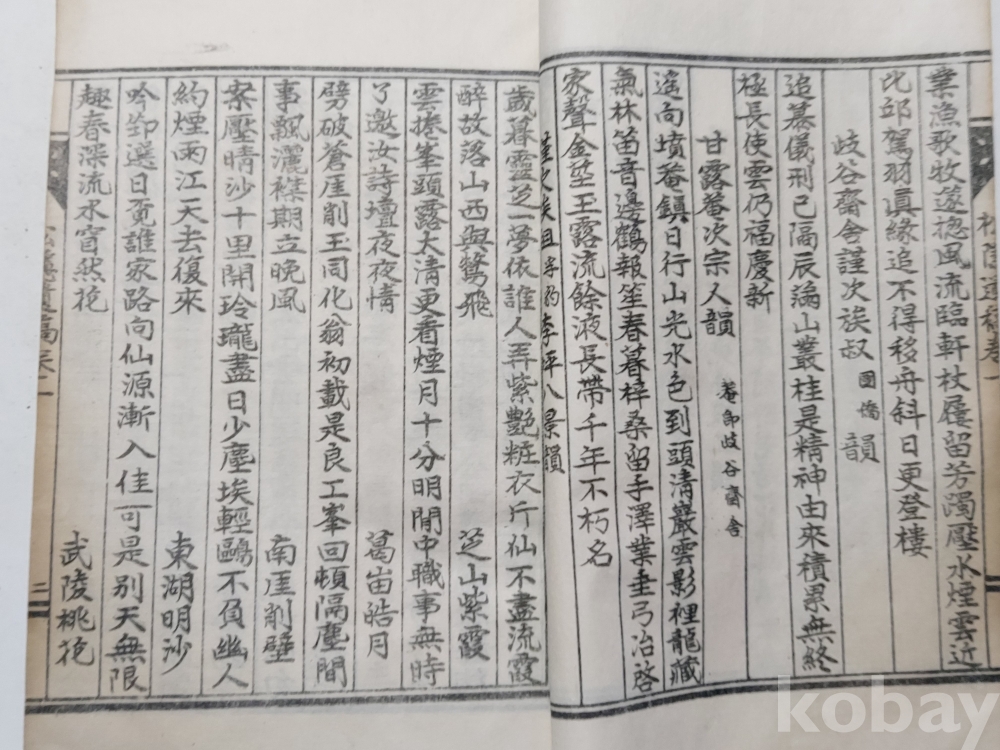 業漁歌牧邃摠風流臨軒杖屨留芳躅壓水煙雲近
比邱駕羽眞緣追不得移舟斜日更登樓
歧谷齋舍謹次族叔 韻
追慕儀刑已隔辰滿山叢桂是精神由來積累無終
極長使雲仍福慶新
甘露菴次宗人韻 菴卽歧谷齋舍
遙向墳菴鎭日行山光水色到頭淸巖雲影裡龍藏
氣林笛音邊鶴報笙春暮梓桑留手澤業垂弓冶啓
家聲金莖玉露流餘液長帶千年不朽名
李坪八景韻
歲暮靈芝一夢依誰人弄紫艶粧衣斤仙不盡流霞
醉故落山西與鶩飛 芝山紫霞
雲捲峯頭露太淸更看煙月十分明閒中職事無時
了邀汝詩壇夜夜情 葛峀皓月
劈破蒼厓削玉同化翁初載是良工峯回頓隔塵間
事飄灑襟期立晩風 南厓削壁
案壓晴沙十里開玲瓏盡日少塵埃輕鷗不負幽人
約煙雨江天去復來 東湖明沙
吟筇選日覓誰家路向仙源漸入佳可是別天無限
趣春深流水窅然花 武陵桃花
二
kobay